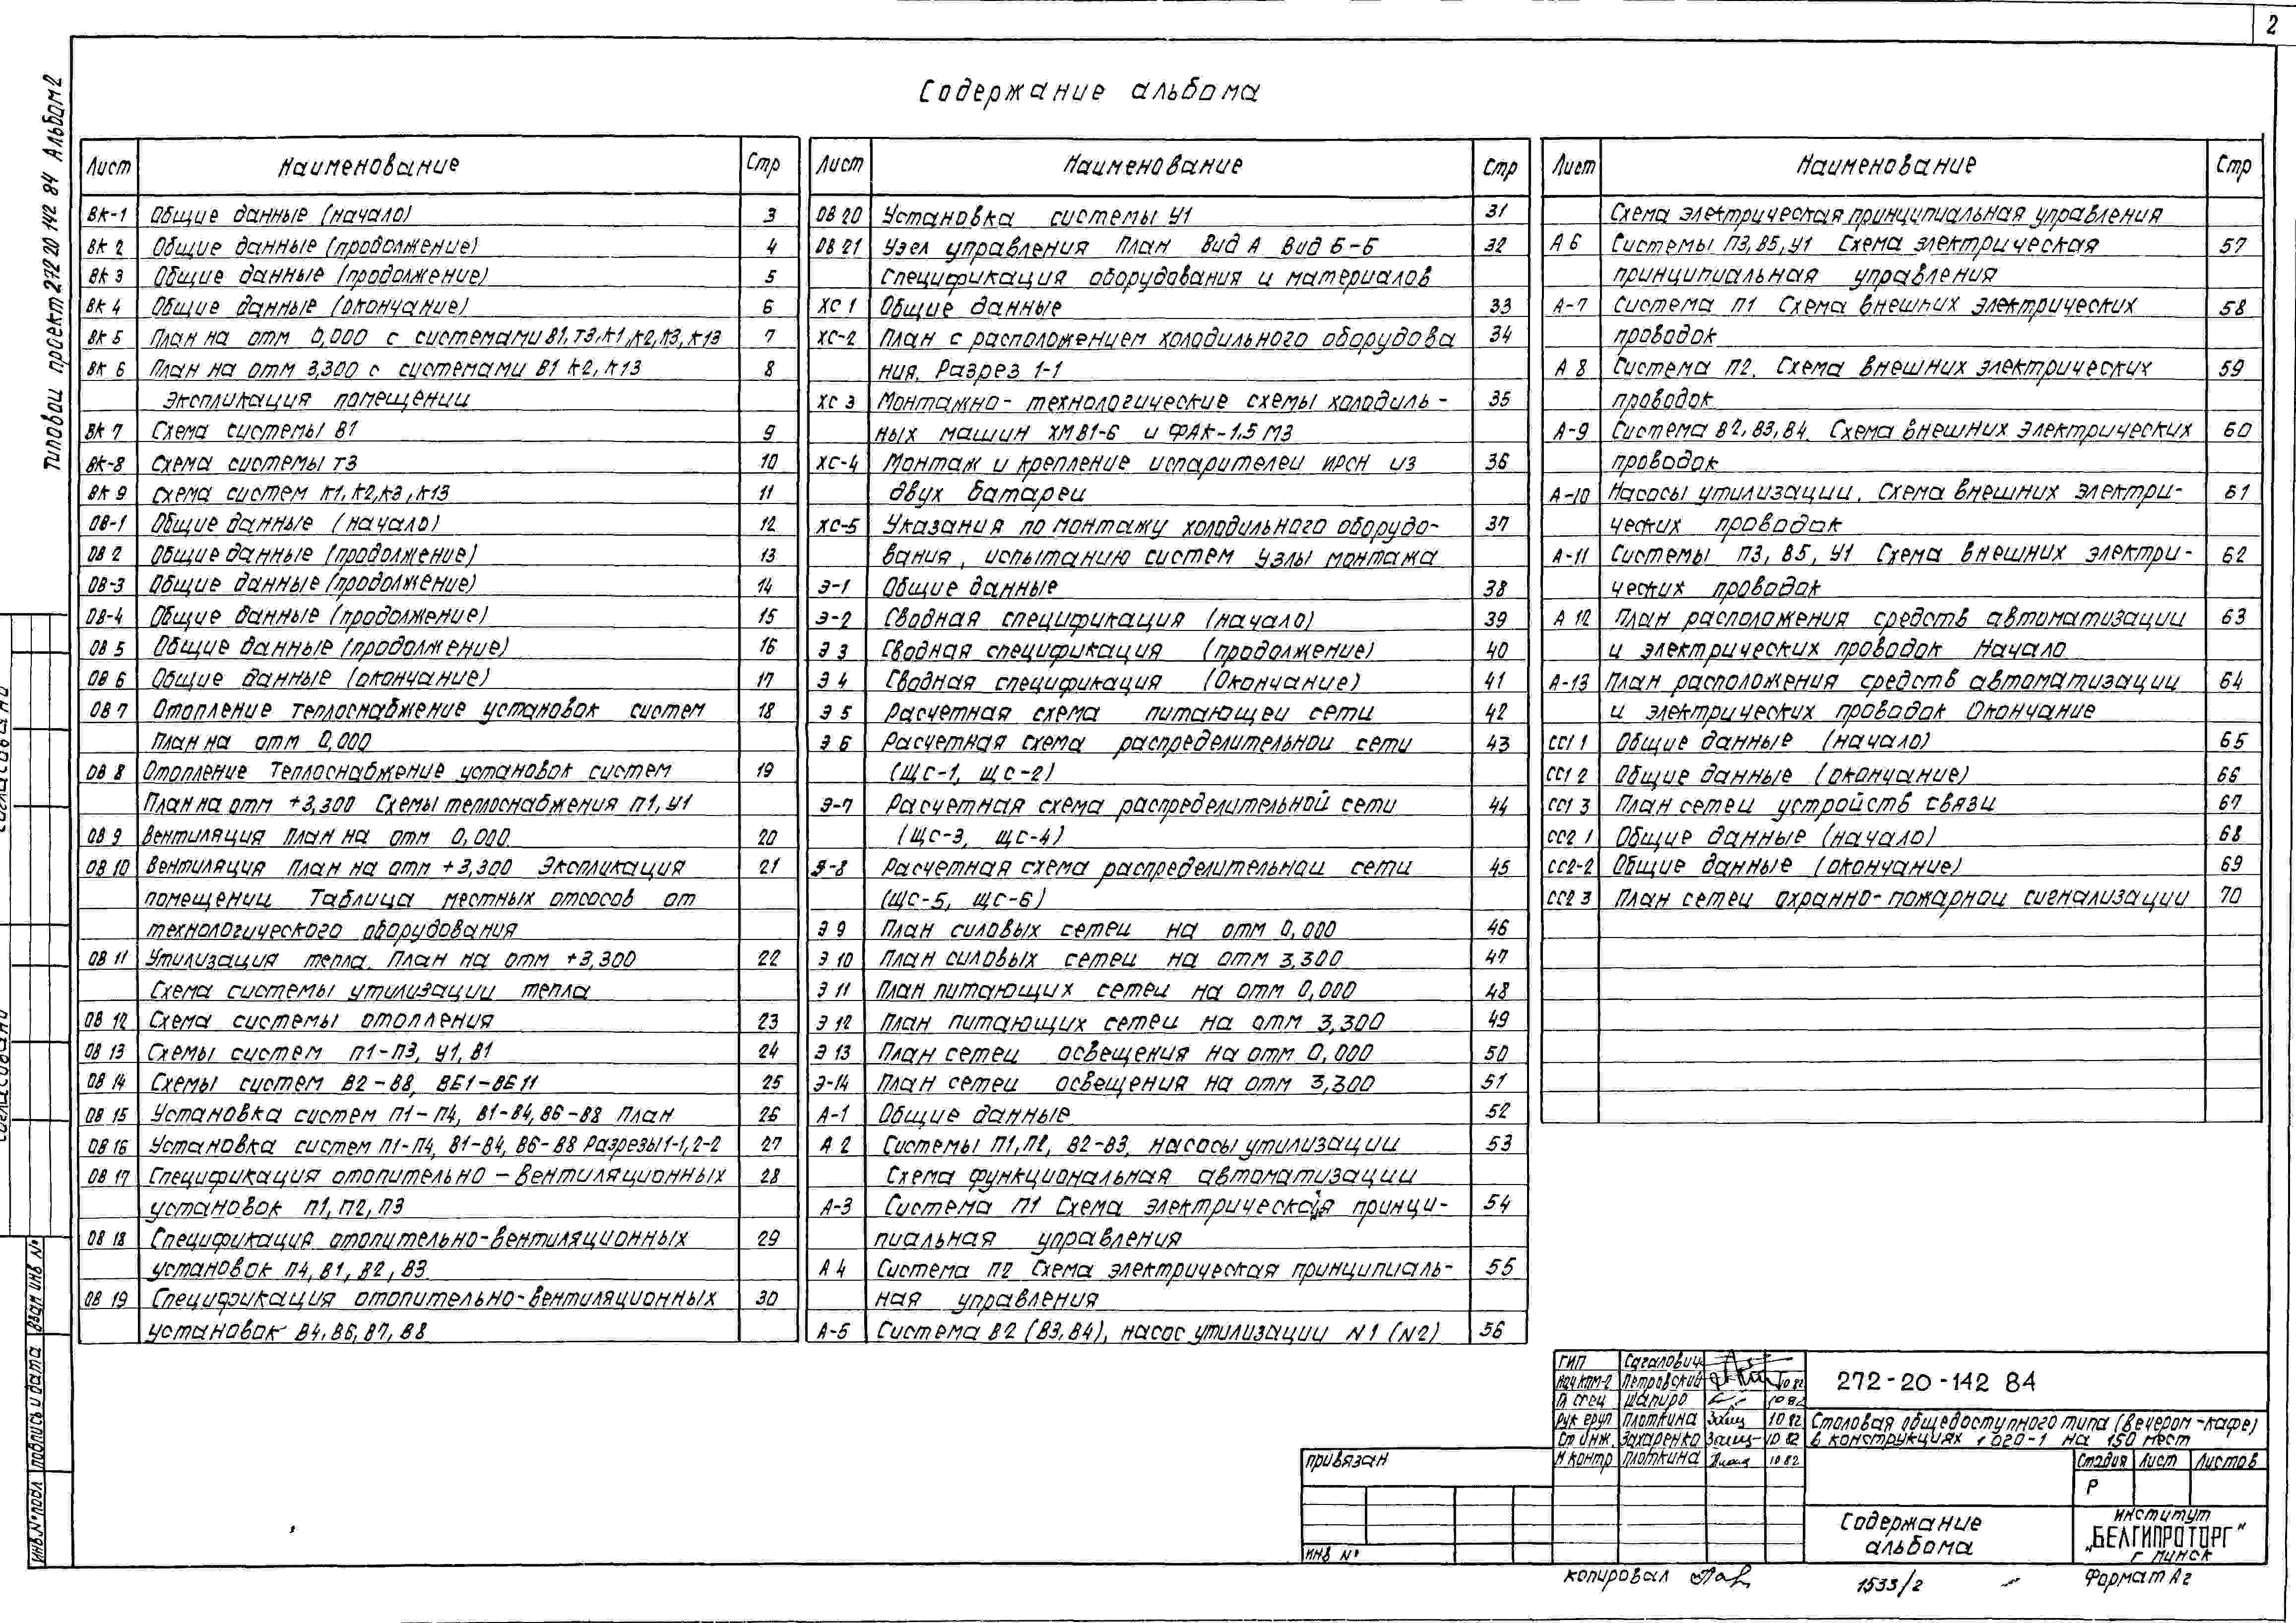 2
Типовой проект 272 20 142 84 Альбом 2
Содержание альбома
Лист Наименование Стр
ВК-1 Общие данные (начало) 3
ВК 2 Общие данные (продолжение) 4
ВК 3 Общие данные (продолжение) 5
ВК 4 Общие данные (окончание) 6
ВК 5 План на отм 0,000 с системами В1, Т3, К1, К2, К3, К13 7
ВК 6 План на отм 3,300 с системами В1 К2, К13 8
Экспликация помещении
ВК 7 Схема системы В1 9
ВК-8 Схема системы Т3 10
ВК 9 Схема систем К1, К2, К3, К13 11
ОВ-1 Общие данные (начало) 12
ОВ 2 Общие данные (продолжение) 13
ОВ-3 Общие данные (продолжение) 14
ОВ-4 Общие данные (продолжение) 15
ОВ 5 Общие данные (продолжение) 16
ОВ 6 Общие данные (окончание) 17
ОВ 7 Отопление теплоснабжение установок систем 18
План на отм 0,000
ОВ 8 Отопление Теплоснабжение установок систем 19
План на отм +3,300 Схемы теплоснабжения П1, У1
ОВ 9 Вентиляция План на отм 0,000. 20
ОВ 10 Вентиляция План на отм +3,300 Экспликация 21
помещении Таблица местных отсосов от
технологического оборудования
ОВ 11 Утилизация тепла. План на отм +3,300 22
Схема системы утилизации тепла
ОВ 12 Схема системы отопления 23
ОВ 13 Схемы систем П1-П3, У1, В1 24
ОВ 14 Схемы систем В2-В8, ВЕ1-ВЕ11 25
ОВ 15 Установка систем П1-П4, В1-В4, В6-В8 План 26
ОВ 16 Установка систем П1-П4, В1-В4, В6-В8 Разрезы 1-1, 2-2 27
ОВ 17 Спецификация отопительно-вентиляционных 28
установок П1, П2, П3
ОВ 18 Спецификация отопительно-вентиляционных 29
установок П4, В1, В2, В3
ОВ 19 Спецификация отопительно-вентиляционных 30
установок В4, В6, В7, В8
Лист Наименование Стр
ОВ 20 Установка системы У1 31
ОВ 21 Узел управления План Вид А Вид Б-Б 32
Спецификация оборудования и материалов
ХС 1 Общие данные 33
ХС-2 План с расположением холодильного оборудова 34
ния. Разрез 1-1
ХС 3 Монтажно-технологические схемы холодиль- 35
ных машин ХМВ1-6 и ФАК-1.5 М3
ХС-4 Монтаж и крепление испарителеи ИРСН из 36
двух батареи
ХС-5 Указания по монтажу холодильного оборудо- 37
вания, испытанию систем Узлы монтажа
Э-1 Общие данные 38
Э-2 Сводная спецификация (начало) 39
Э 3 Сводная спецификация (продолжение) 40
Э 4 Сводная спецификация (Окончание) 41
Э 5 Расчетная схема питающеи сети 42
Э 6 Расчетная схема распределительнои сети 43
(ЩС-1, ЩС-2)
Э-7 Расчетная схема распределительной сети 44
(ЩС-3, ЩС-4)
Э-8 Расчетная схема распределительнои сети 45
(ЩС-5, ЩС-6)
Э 9 План силовых сетеи на отм 0,000 46
Э 10 План силовых сетеи на отм 3,300 47
Э 11 План питающих сетеи на отм 0,000 48
Э 12 План питающих сетеи на отм 3,300 49
Э 13 План сетеи освещения на отм 0,000 50
Э-14 План сетеи освещения на отм 3,300 51
А-1 Общие данные 52
А 2 Системы П1, П2, В2-В3, насосы утилизации 53
Схема функциональная автоматизации
А-3 Система П1 Схема электрическая принци- 54
пиальная управления
А 4 Система П2 Схема электрическая принципиаль- 55
ная управления
А-5 Система В2 (В3, В4), насос утилизации N1 (N2) 56
Лист Наименование Стр
Схема электрическая принципиальная управления
А 6 Системы П3, В5, У1 Схема электрическая 57
принципиальная управления
А-7 Система П1 Схема внешних электрических 58
проводок
А 8 Система П2. Схема внешних электрических 59
проводок
А-9 Система В2, В3, В4. Схема внешних электрических 60
проводок
А-10 Насосы утилизации. Схема внешних электри- 61
ческих проводок
А-11 Системы П3, В5, У1 Схема внешних электри- 62
ческих проводок
А 12 План расположения средств автоматизации 63
и электрических проводок Начало
А-13 План расположения средств автоматизации 64
и электрических проводок Окончание
СС1 1 Общие данные (начало) 65
СС1 2 Общие данные (окончание) 66
СС1 3 План сетеи устройств связи 67
СС2 1 Общие данные (начало) 68
СС2-2 Общие данные (окончание) 69
СС2 3 План сетеи охранно-пожарнои сигнализации 70
Взам инв №
Подпись и дата
Инв. № подл
ГИП Сагалович
Нач КПМ-2 Петровский 10 82
Гл спец Шапиро 10 82
Рук груп Плоткина 10 82
Ст инж. Захаренко 10 82
Н контр Плоткина 10 82
272-20-142 84
Столовая общедоступного типа (вечером-кафе)
в конструкциях 1 020-1 на 150 мест
Стадия Лист Листов
Р
Содержание
альбома
институт
„БЕЛГИПРОТОРГ"
г Минск
привязан
ИНВ №
копировал
1533/2
Формат А2